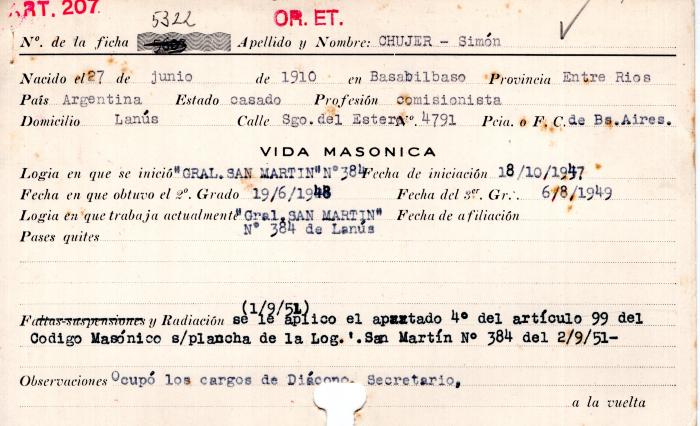 ART. 207
OR. ET.
5322
Nº. de la ficha Apellido y Nombre: CHUJER - Simón
Nacido el 27 de junio de 1910 en Basabilbaso Provincia Entre Rios
País Argentina Estado casado Profesión comisionista
Domicilio Lanús Calle Sgo.del Estero Nº. 4791 Pcia. o F. C. de Bs.Aires.
VIDA MASONICA
Logia en que se inició "GRAL. SAN MARTIN" Nº 384 Fecha de iniciación 18/10/1947
Fecha en que obtuvo el 2º. Grado 19/6/1948 Fecha del 3er. Gr∴. 6/8/1949
Logia en que trabaja actualmente "Gral. SAN MARTIN" Fecha de afiliación
Pases quites Nº 384 de Lanús
(1/9/51)
Faltas-suspensiones y Radiación se le aplico el apxxtado 4º del artículo 99 del
Codigo Masónico s/plancha de la Log.'. San Martín Nº 384 del 2/9/51-
Observaciones Ocupó los cargos de Diácono, Secretario,
a la vuelta